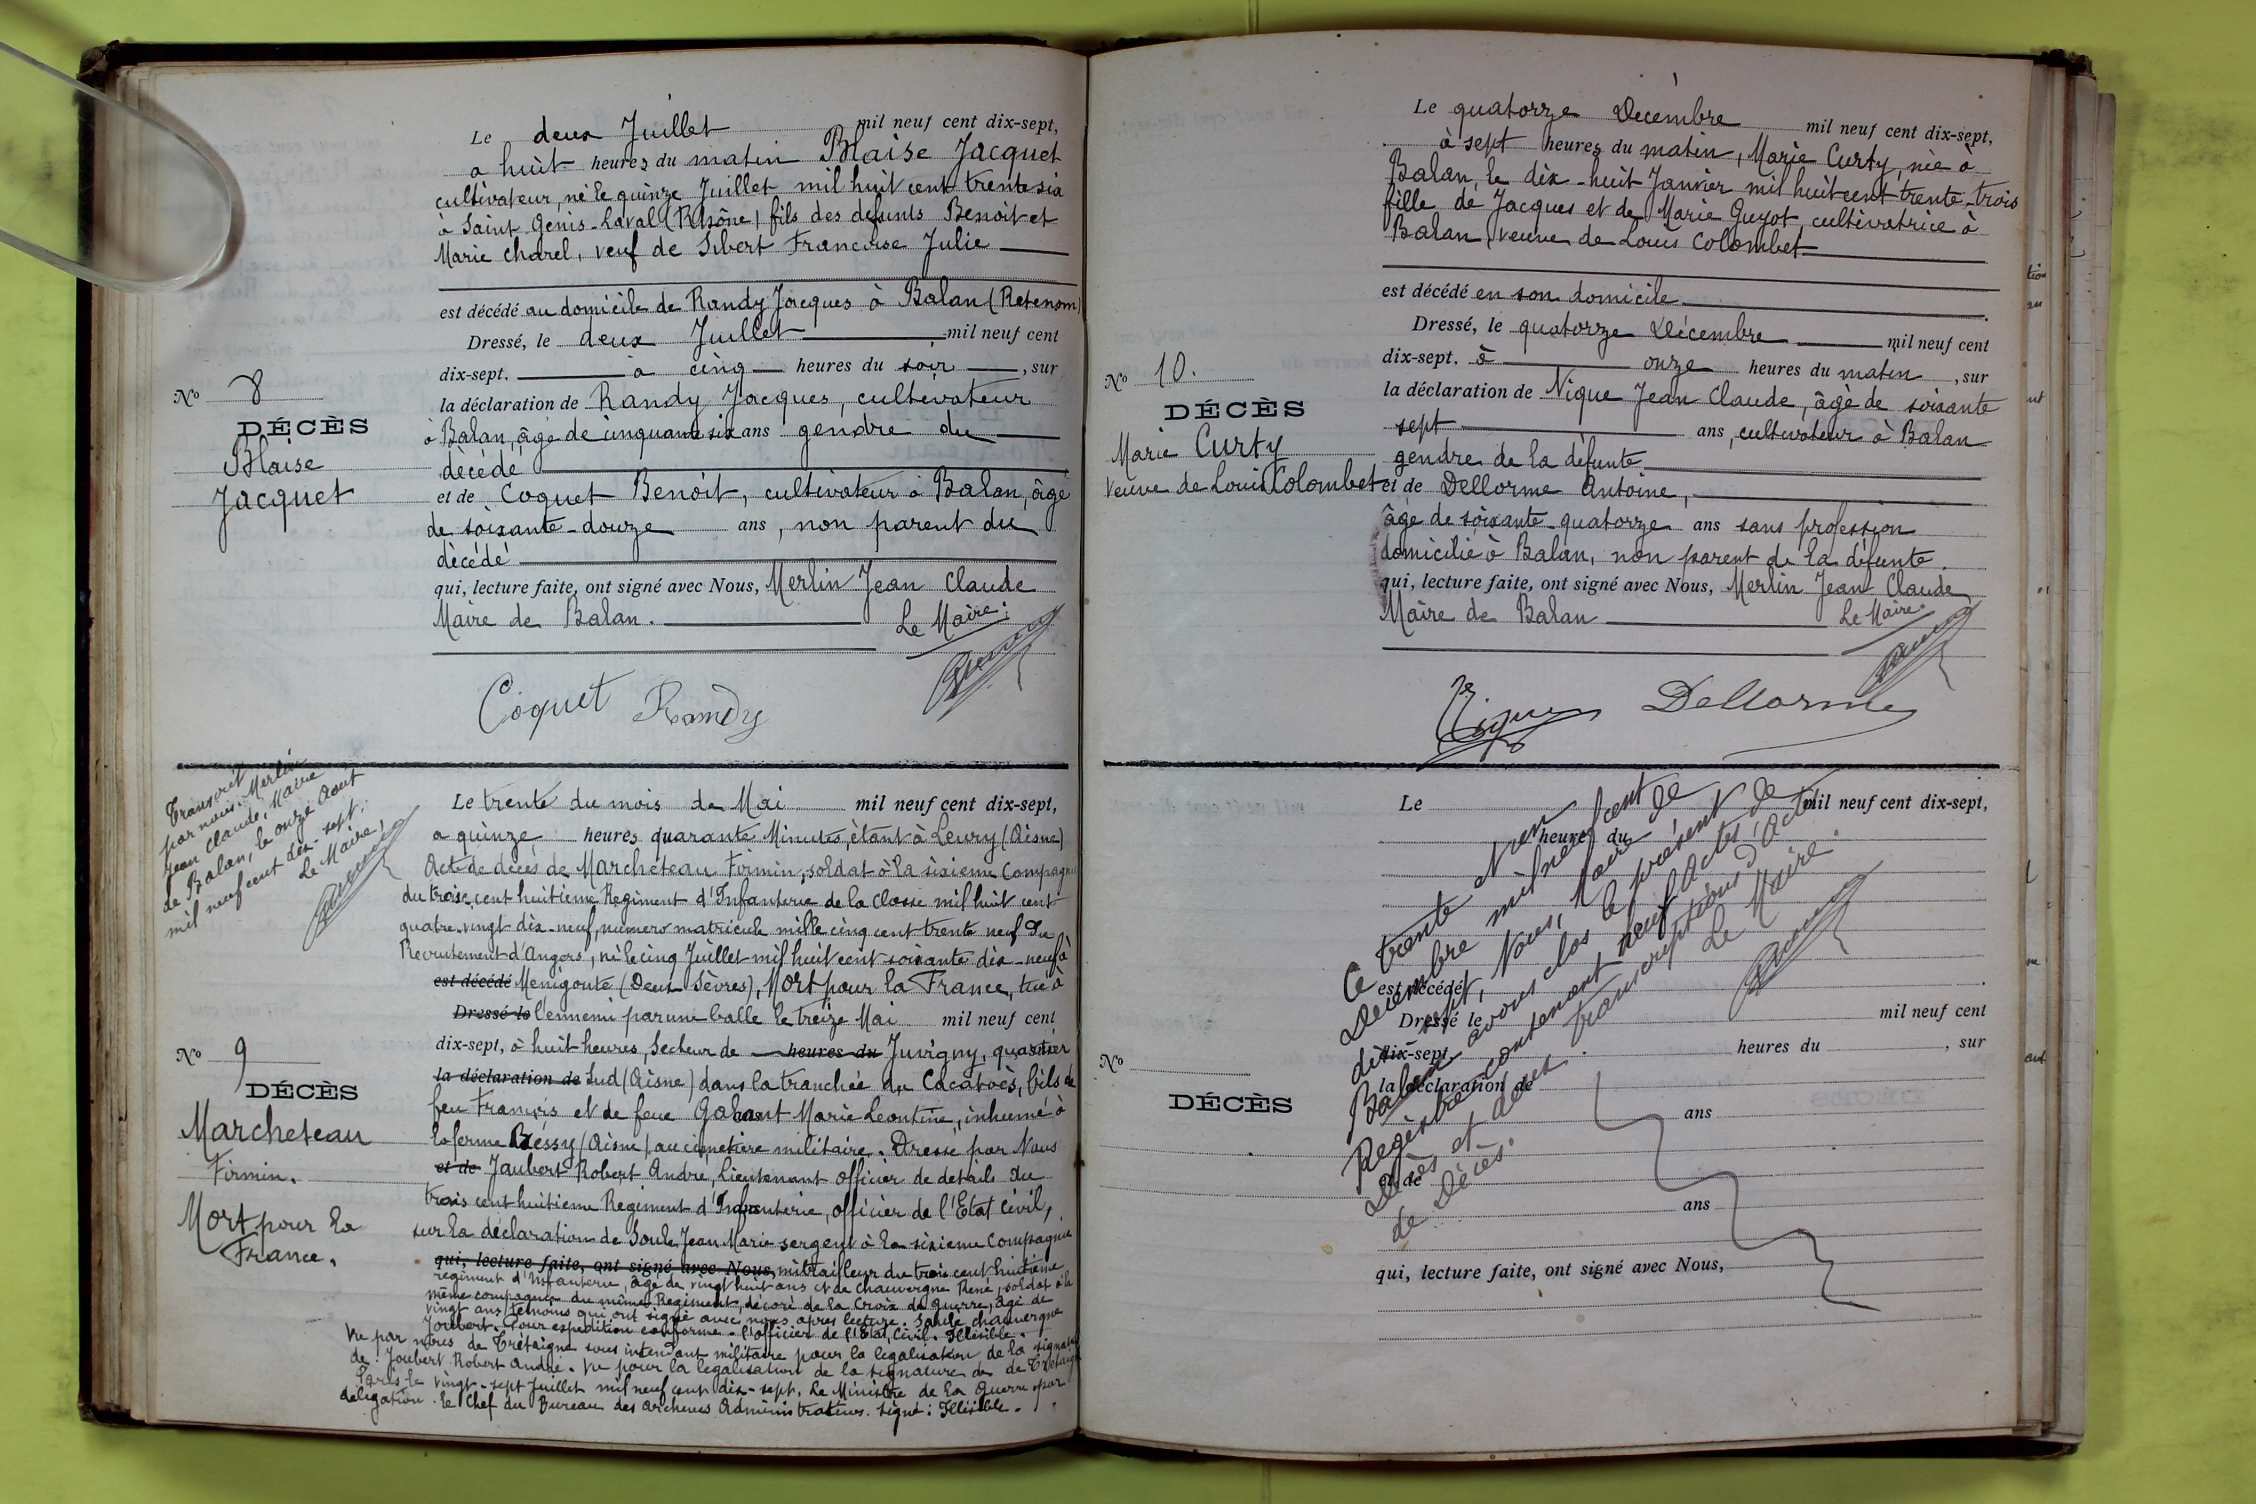 Le deux Juillet mil neuf cent dix-sept,
a huit heures du matin Blaise Jacquet
cultivateur, né le quinze Juillet mil huit cent trente six
à Saint Genis-Laval (Rhône) fils des defunts Benoit et
Marie Charel, veuf de Sibert Francoise Julie
est décédé au domicile de Randy Jacques à Balan (Retenom)
Dressé, le deux Juillet mil neuf cent
dix-sept. à cinq heures du soir, sur
la déclaration de Randy Jacques, cultivateur
à Balan, âgé de cinquante six ans gendre du
décédé
et de Coquet Benoit, cultivateur à Balan, âgé
de soixante-douze ans, non parent du
décédé
qui, lecture faite, ont signé avec Nous, Merlin Jean Claude
Maire de Balan.
Le Maire:
Coquet Randy
No 8
DÉCÈS
Blaise
Jacquet
Transcrit
par nous Merlin
Jean Claude, Maire
de Balan, le onze Aout
mil neuf cent dix-sept.
Le Maire,
Le trente du mois de Mai mil neuf cent dix-sept,
a quinze heures quarante Minutes, étant à Leury (Aisne)
Acte de décès de Marcheteau Firmin, soldat à la sixieme Compagnie
du trois cent huitieme Regiment d'Infanterie de la Classe mil huit cent
quatre-vingt dix-neuf, numero matricule mille cinq cent trente neuf du
Recrutement d'Angers, né le cinq Juillet mil huit cent soixante dix-neuf à
est décédé Menigoute (Deux Sèvres), Mort pour la France, tué à
Dressé le l'ennemi par une balle le treize Mai mil neuf cent
dix-sept, à huit heures, Secteur de heures du Juvigny, quartier
la déclaration de Sud (Aisne) dans la tranchée du Cacatoès, fils de
feu François et de feue Gabant Marie Leontine, inhumé à
la ferme Bessy (Aisne) au cimetiere militaire. Dressé par Nous
et de Jaubert Robert André, Lieutenant officier de details du
trois cent huitieme Regiment d'Infanterie, officier de l'Etat Civil,
sur la declaration de Soule Jean Marie sergent à la sixieme Compagnie
qui, lecture faite, ont signé avec Nous, mitrailleur du trois cent huitieme
regiment d'Infanterie, âgé de vingt huit ans et de Chauvergne René, soldat à la
même compagnie du même Regiment, décoré de la Croix de guerre, âgé de
vingt ans, témoins qui ont signé avec nous apres lecture. Soulé Chauvergne
Joubert. Pour expedition conforme. l'officier de l'Etat Civil. Illisible.
Vu par nous de Trétaigne sous intendant militaire pour la legalisation de la signature
de Joubert Robert André. Vu pour la legalisation de la signature de de Trétaigne
Paris le vingt-sept Juillet mil neuf cent dix-sept. Le Ministre de la Guerre par
délégation. le Chef du Bureau des archives Administratives. signé: Illisible.
No 9
DÉCÈS
Marcheteau
Firmin.
Mort pour la
France.
Le quatorze Décembre mil neuf cent dix-sept,
à sept heures du matin, Marie Curty, née à
Balan, le dix-huit Janvier mil huit cent trente-trois
fille de Jacques et de Marie Guyot, cultivatrice à
Balan, veuve de Louis Colombet
est décédé en son domicile
Dressé, le quatorze Décembre mil neuf cent
dix-sept. à onze heures du matin, sur
la déclaration de Nique Jean Claude, âgé de soixante
sept ans, cultivateur à Balan
gendre de la défunte
et de Dellorme Antoine,
âgé de soixante-quatorze ans sans profession
domicilié à Balan, non parent de la défunte.
qui, lecture faite, ont signé avec Nous, Merlin Jean Claude
Maire de Balan
Le Maire.
Nique Dellorme
No 10.
DÉCÈS
Marie Curty
Veuve de Louis Colombet
Le mil neuf cent dix-sept,
heure du
est décédé
Dressé le mil neuf cent
dix-sept. heures du , sur
la déclaration de
ans
et de
ans
qui, lecture faite, ont signé avec Nous,
No
DÉCÈS
Ce trente Nven
Décembre mil neuf cent
dix-sept, Nous, Maire de
Balan avons clos le présent
Registre contenant neuf Actes de
Décès et deux transcriptions d'Actes
de Décès.
Le Maire.